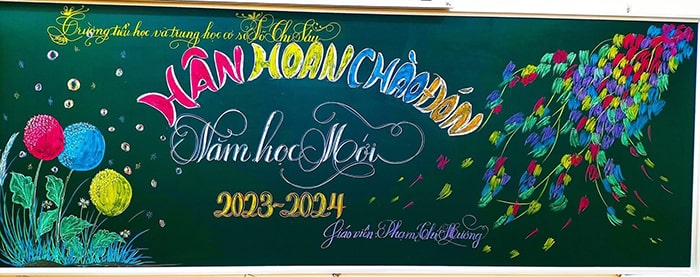 Trường tiểu học và trung học cơ sở Võ Thị Sáu
HÂN HOAN CHÀO ĐÓN
Năm học Mới
2023-2024
Giáo viên: Phạm Thị Hương